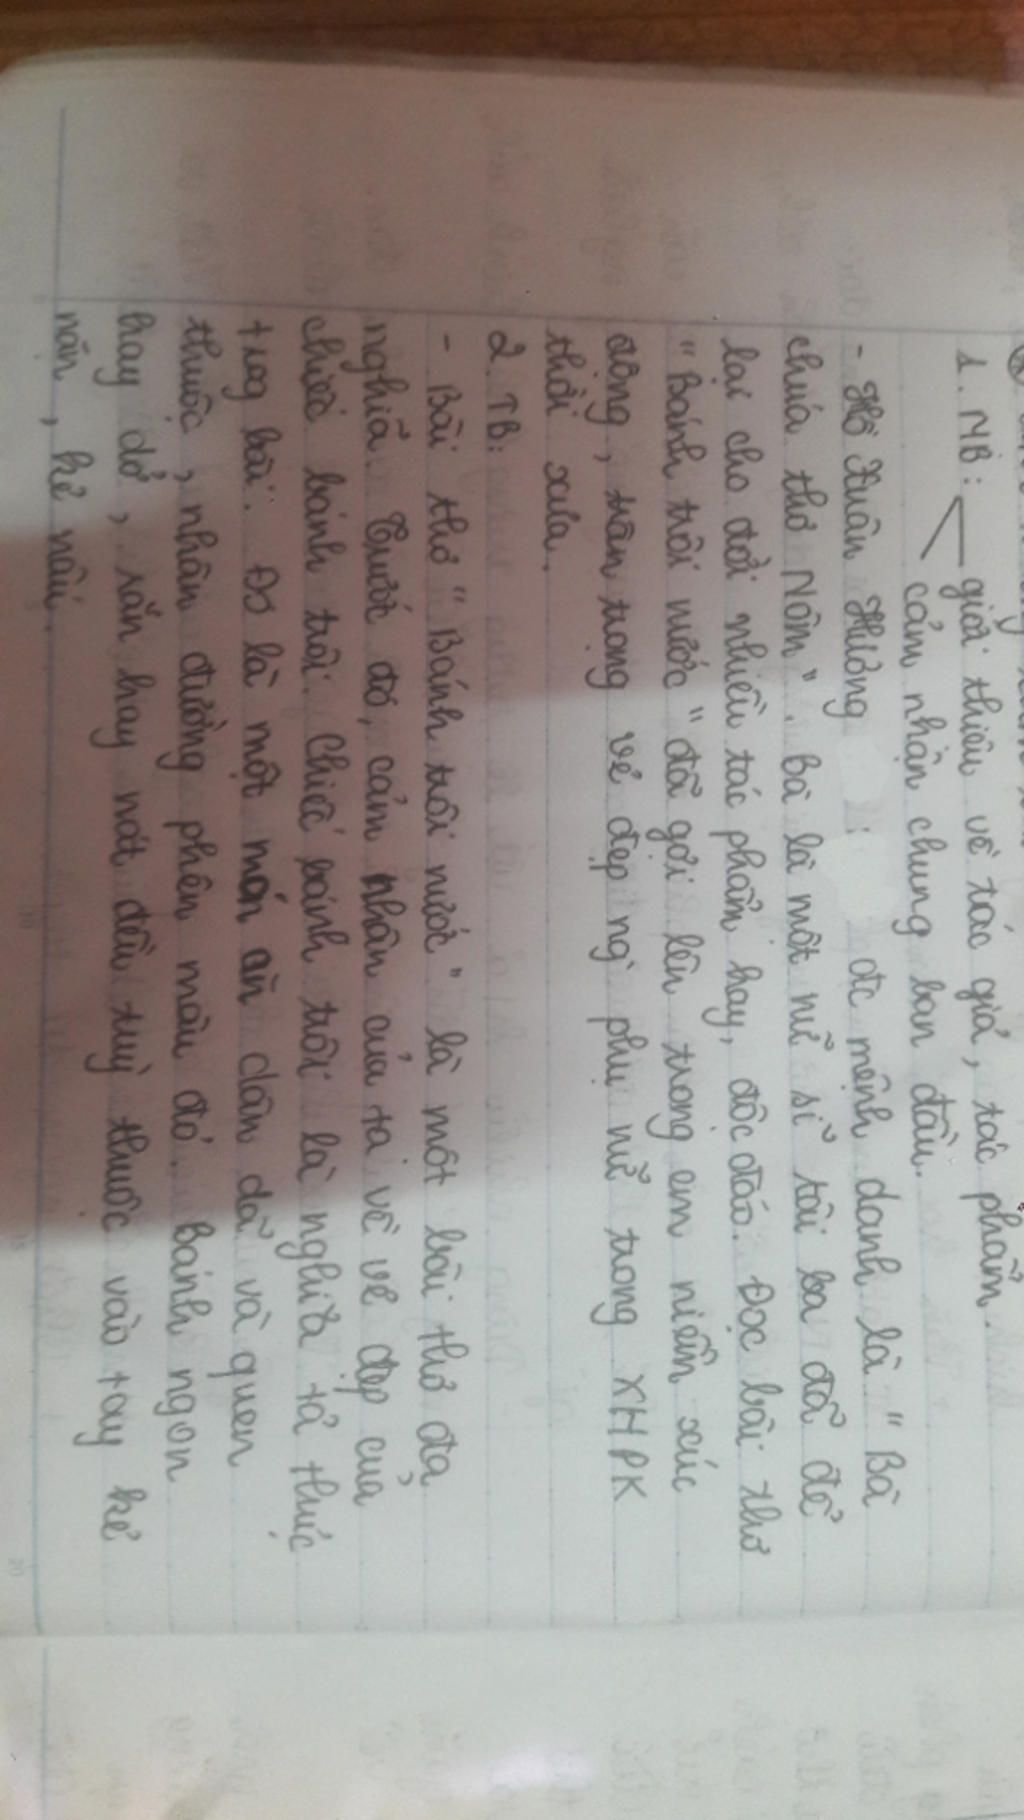 1. MB: giới thiệu về tác giả, tác phẩm.
cảm nhận chung ban đầu.
- Hồ Xuân Hương : đc mệnh danh là "Bà
chúa thơ Nôm". Bà là một nữ sĩ tài ba đã để
lại cho đời nhiều tác phẩm hay, độc đáo. Đọc bài thơ
"Bánh trôi nước" đã gợi lên trong em niềm xúc
động, trân trọng vẻ đẹp ng` phụ nữ trong XHPK
thời xưa.
2. TB:
- Bài thơ "Bánh trôi nước" là một bài thơ đa
nghĩa. Trước đó, cảm nhân của ta về vẻ đẹp của
chiếc bánh trôi. Chiếc bánh trôi là nghĩa tả thực
trog bài. Đó là một món ăn dân dã và quen
thuộc, nhân đường phên màu đỏ. Bánh ngon
hay dở, rắn hay nát đều tuỳ thuộc vào tay kẻ
nặn, kẻ nấu.